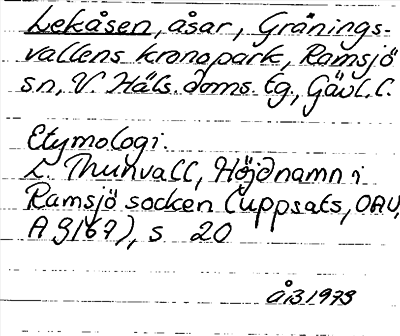 Lekåsen, åsar, Grånings-
vallens kronopark, Ramsjö
sn, V. Häls. doms. tg, Gävl. l.
Etymologi.
L. Thunvall, Höjdnamn i
Ramsjö socken (uppsats, OAU,
A 9167), s 20
ÅB 1973